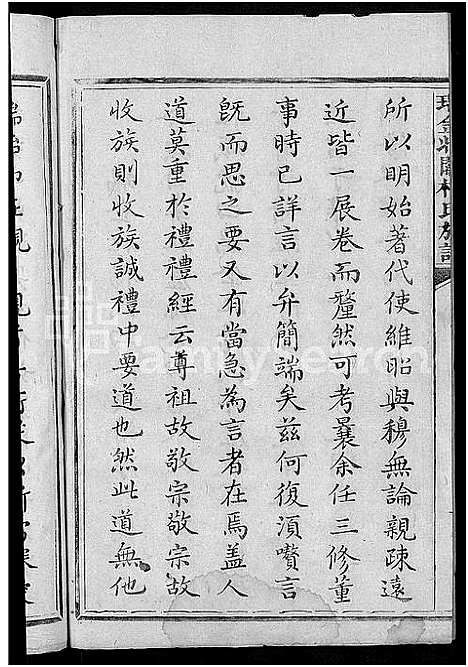 所以明始著代使維昭與穆無論親疎遠
近皆一展卷而釐然可考曩余任三修董
事時已詳言以弁簡端矣兹何復湏贊言
旣而思之要又有當急為言者在焉盖人
道莫重於禮禮經云尊祖故敬宗敬宗故
收族則收族誠禮中要道也然此道無他
FamilySearch